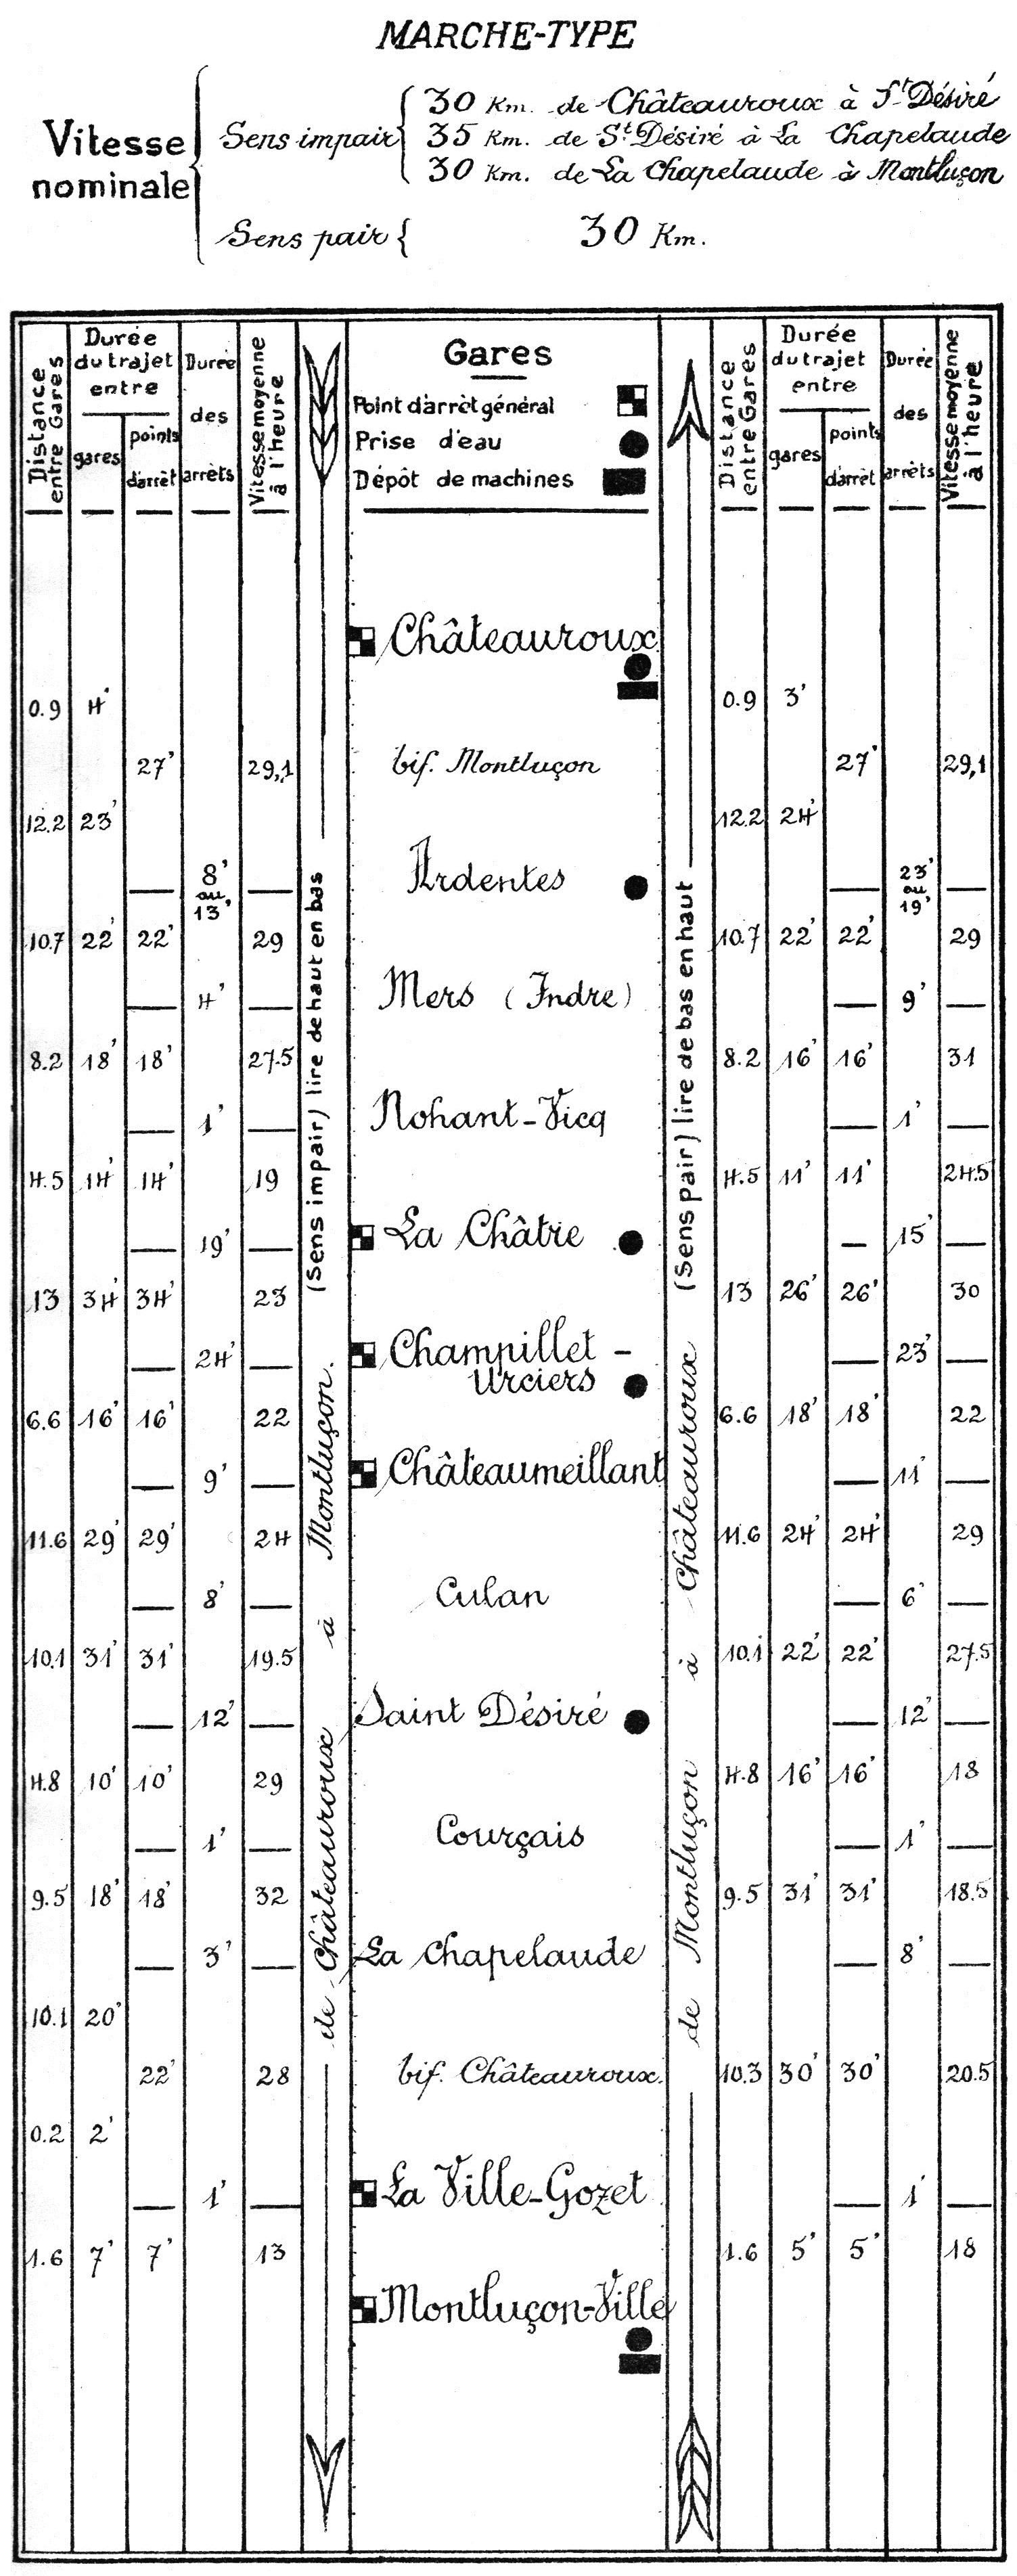 MARCHE-TYPE
Vitesse nominale
Sens impair
30 Km. de Châteauroux à St Désiré
35 Km. de St Désiré à La Chapelaude
30 Km. de La Chapelaude à Montluçon
Sens pair
30 Km.
Distance entre Gares
Durée du trajet entre
gares
points d'arrêt
Durée des arrêts
Vitesse moyenne à l'heure
Gares
Point d'arrêt général
Prise d'eau
Dépôt de machines
Distance entre Gares
Durée du trajet entre
gares
points d'arrêt
Durée des arrêts
Vitesse moyenne à l'heure
(Sens impair) lire de haut en bas
de Châteauroux à Montluçon.
(Sens pair) lire de bas en haut
de Montluçon à Châteauroux
Châteauroux
0.9 4' 0.9 3'
27' 29,1 bif. Montluçon 27' 29,1
12.2 23' 12.2 24'
8' au 13' Ardentes 23' au 19'
10.7 22' 22' 29 10.7 22' 22' 29
4' Mers (Indre) 9'
8.2 18' 18' 27.5 8.2 16' 16' 31
1' Nohant-Vicq 1'
4.5 14' 14' 19 4.5 11' 11' 24.5
19' La Châtre 15'
13 34' 34' 23 13 26' 26' 30
24' Champillet - Urciers 23'
6.6 16' 16' 22 6.6 18' 18' 22
9' Châteaumeillant 11'
11.6 29' 29' 24 11.6 24' 24' 29
8' Culan 6'
10.1 31' 31' 19.5 10.1 22' 22' 27.5
12' Saint Désiré 12'
4.8 10' 10' 29 4.8 16' 16' 18
1' Courçais 1'
9.5 18' 18' 32 9.5 31' 31' 18.5
3' La Chapelaude 8'
10.1 20'
22' 28 bif. Châteauroux. 10.3 30' 30' 20.5
0.2 2'
1' La Ville-Gozet 1'
1.6 7' 7' 13 1.6 5' 5' 18
Montluçon-Ville